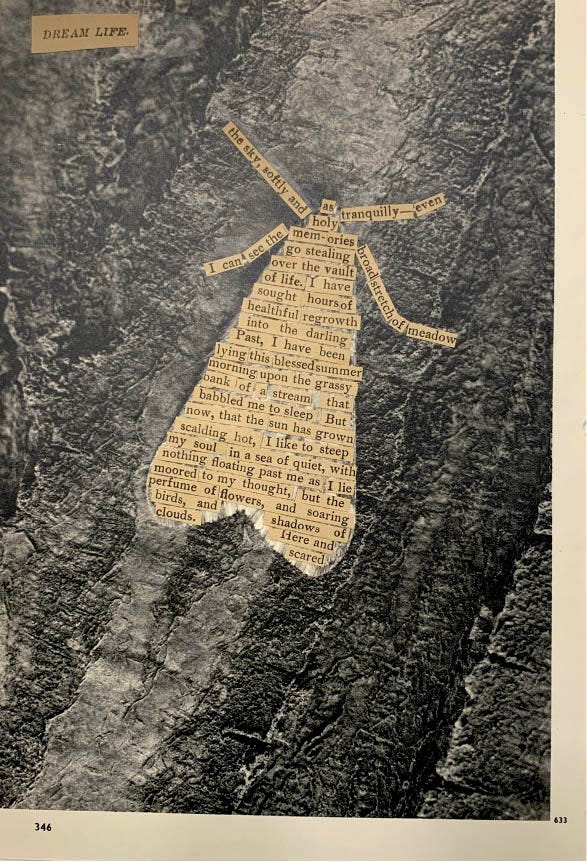 DREAM LIFE.
the sky, softly and
as
tranquilly—even
holy
I can see the
mem-ories
go stealing
over the vault
of life. I have
sought hours of
healthful regrowth
into the darling
Past, I have been
lying this blessed summer
morning upon the grassy
bank of a stream that
babbled me to sleep But
now, that the sun has grown
scalding hot, I like to steep
my soul in a sea of quiet, with
nothing floating past me as I lie
moored to my thought, but the
perfume of flowers, and soaring
birds, and shadows of
clouds. Here and
scared
broad stretch of meadow
346
633